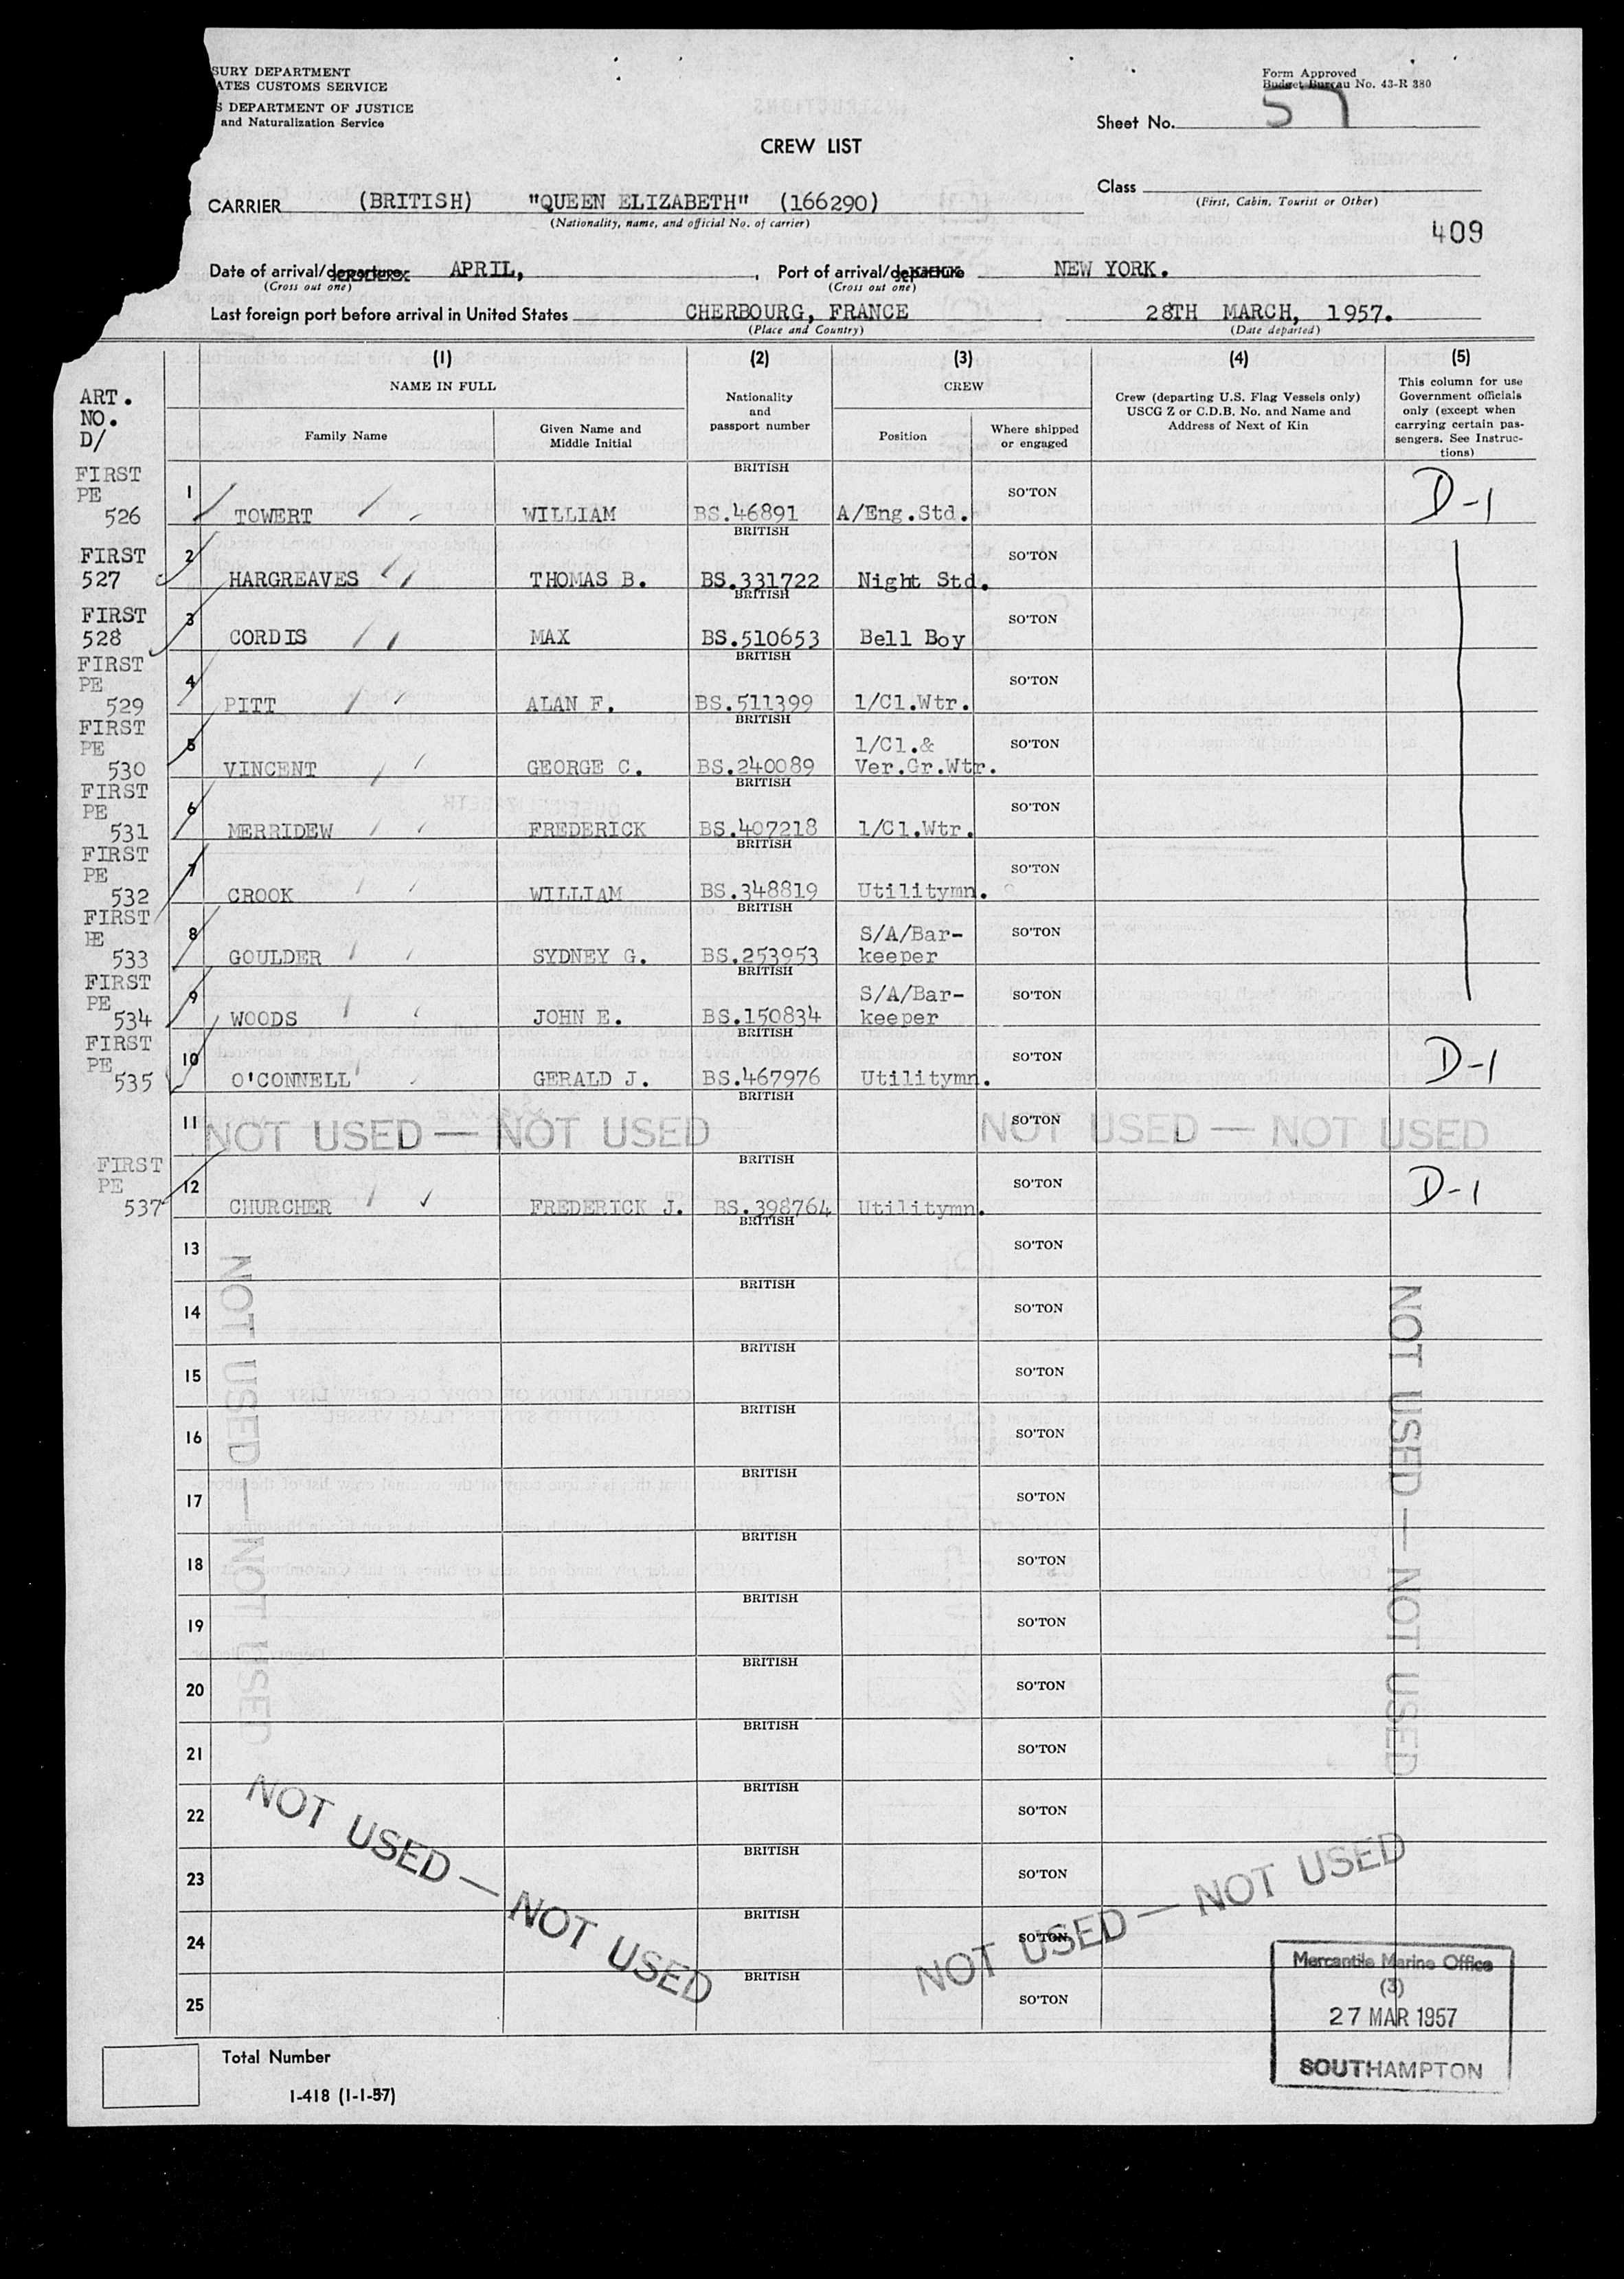 SURY DEPARTMENT
ATES CUSTOMS SERVICE
S DEPARTMENT OF JUSTICE
and Naturalization Service
Form Approved
Budget Bureau No. 43-R 380
Sheet No. 57
CREW LIST
Class
(First, Cabin, Tourist or Other)
CARRIER (BRITISH) "QUEEN ELIZABETH" (166290)
(Nationality, name, and official No. of carrier)
409
Date of arrival/departure APRIL, , Port of arrival/departure NEW YORK.
(Cross out one) (Cross out one)
Last foreign port before arrival in United States CHERBOURG, FRANCE 28TH MARCH, 1957.
(Place and Country) (Date departed)
(1) (2) (3) (4) (5)
ART. NO. D/
NAME IN FULL
Family Name
Given Name and Middle Initial
Nationality and passport number
CREW
Position
Where shipped or engaged
Crew (departing U.S. Flag Vessels only) USCG Z or C.D.B. No. and Name and Address of Next of Kin
This column for use Government officials only (except when carrying certain passengers. See Instructions)
FIRST PE 526 1 TOWERT WILLIAM BRITISH BS.46891 A/Eng.Std. SO'TON D-1
FIRST 527 2 HARGREAVES THOMAS B. BRITISH BS.331722 Night Std. SO'TON
FIRST 528 3 CORDIS MAX BRITISH BS.510653 Bell Boy SO'TON
FIRST PE 529 4 PITT ALAN F. BRITISH BS.511399 1/Cl.Wtr. SO'TON
FIRST PE 530 5 VINCENT GEORGE C. BRITISH BS.240089 1/Cl.& Ver.Gr.Wtr. SO'TON
FIRST PE 531 6 MERRIDEW FREDERICK BRITISH BS.407218 1/Cl.Wtr. SO'TON
FIRST PE 532 7 CROOK WILLIAM BRITISH BS.348819 Utilitymn. SO'TON
FIRST PE 533 8 GOULDER SYDNEY G. BRITISH BS.253953 S/A/Bar-keeper SO'TON
FIRST PE 534 9 WOODS JOHN E. BRITISH BS.150834 S/A/Bar-keeper SO'TON
FIRST PE 535 10 O'CONNELL GERALD J. BRITISH BS.467976 Utilitymn. SO'TON D-1
11 NOT USED — NOT USED BRITISH SO'TON NOT USED — NOT USED
FIRST PE 537 12 CHURCHER FREDERICK J. BRITISH BS.398764 Utilitymn. SO'TON D-1
13 BRITISH SO'TON
14 BRITISH SO'TON
15 BRITISH SO'TON
16 BRITISH SO'TON
17 BRITISH SO'TON
18 BRITISH SO'TON
19 BRITISH SO'TON
20 BRITISH SO'TON
21 BRITISH SO'TON
22 BRITISH SO'TON
23 BRITISH SO'TON
24 BRITISH SO'TON
25 BRITISH SO'TON
NOT USED — NOT USED
NOT USED — NOT USED
NOT USED — NOT USED
NOT USED — NOT USED
Mercantile Marine Office
(3)
27 MAR 1957
SOUTHAMPTON
Total Number
I-418 (1-1-57)